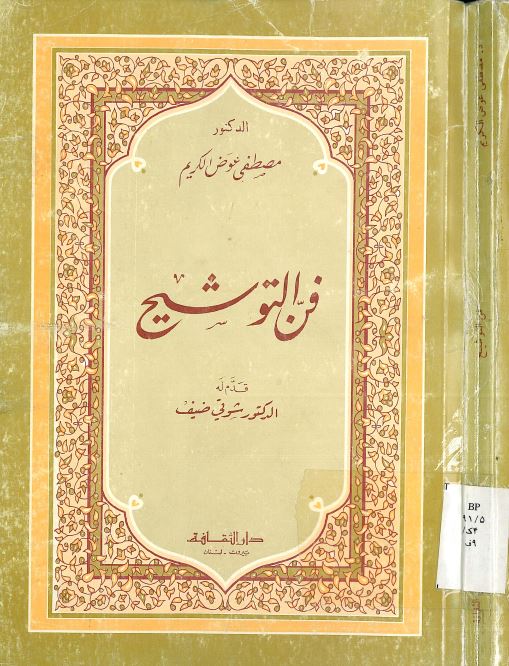 الدكتور
مصطفى عوض الكريم
فنّ التوشيح
قدَّم لَه
الدكتور شوقي ضيف
دار الثقافة
بيروت - لبنان
د. مصطفى عوض الكريم
فن التوشيح
T
BP
٩١/۵